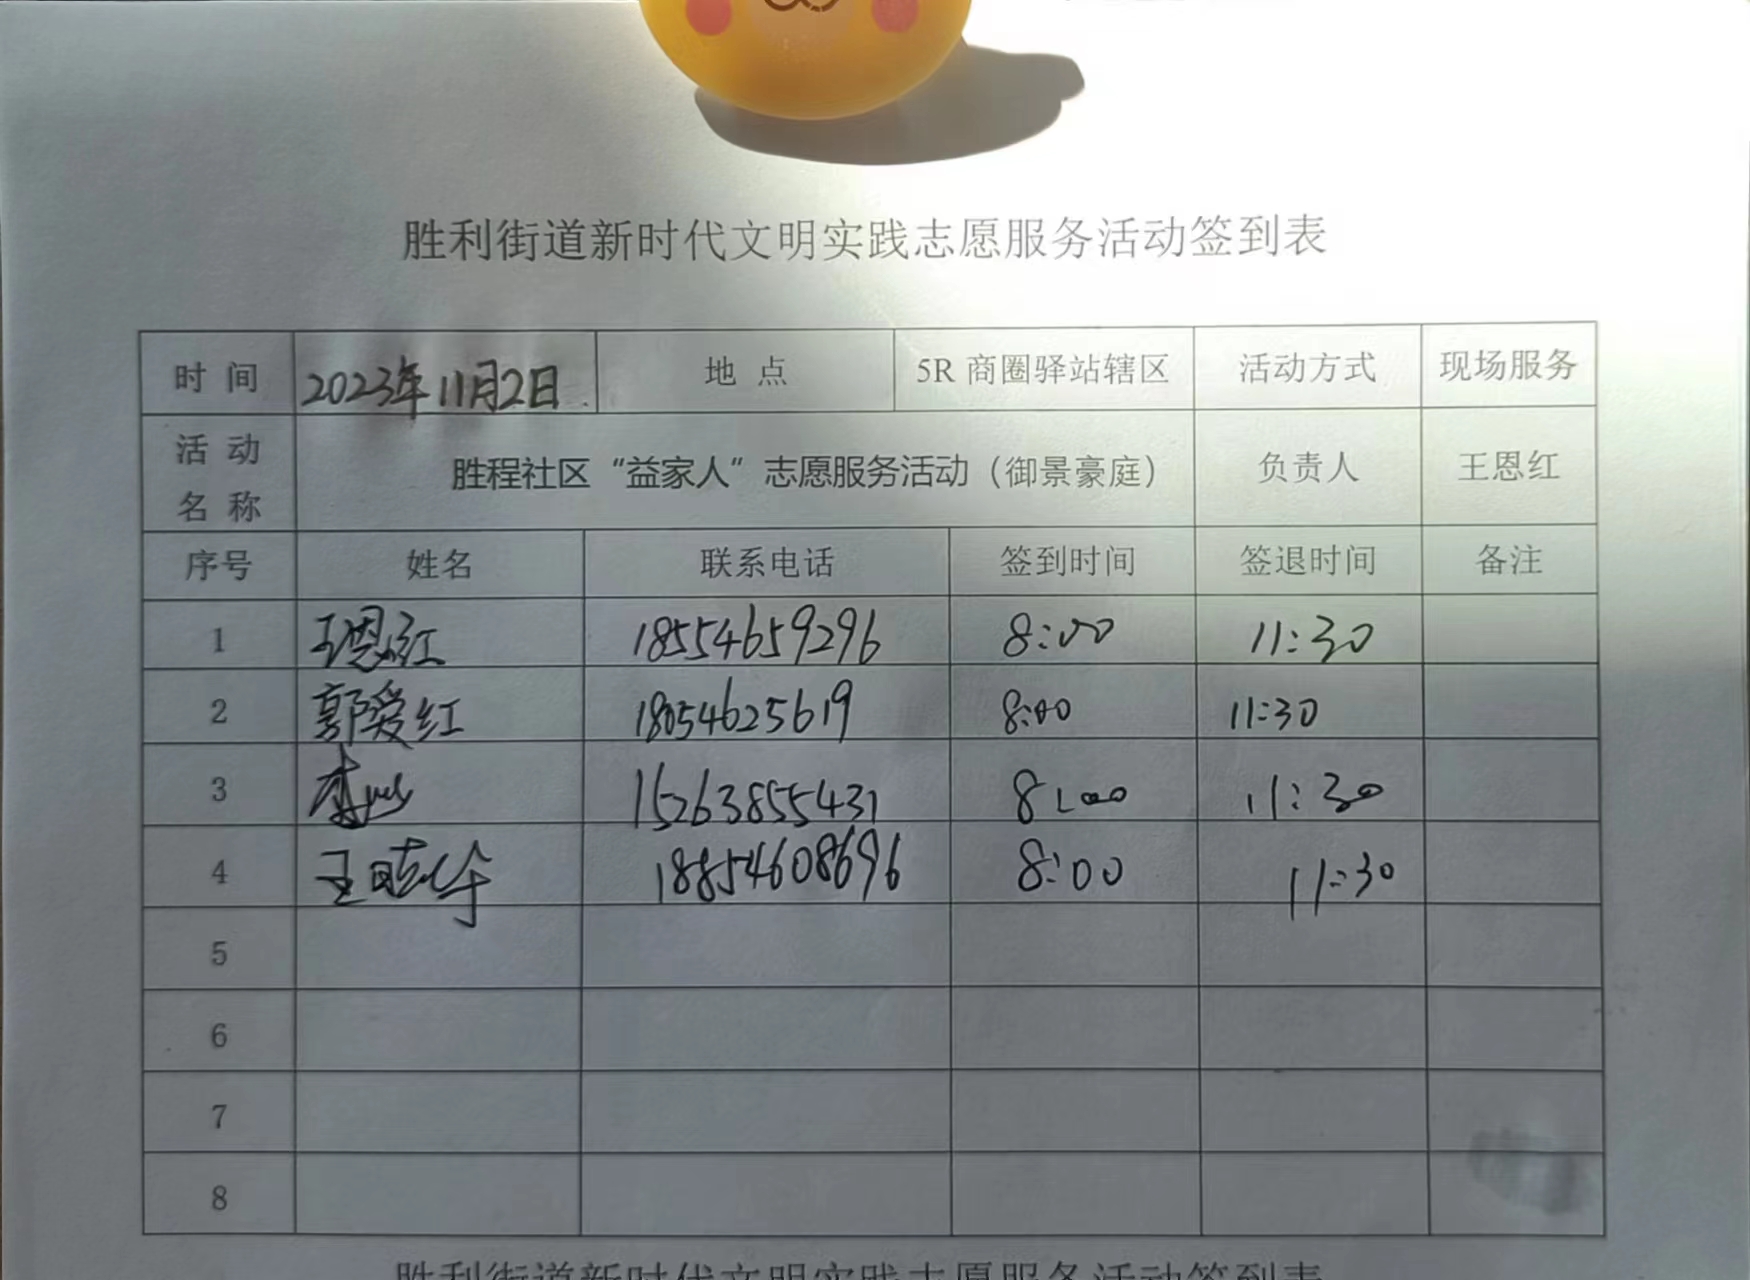 胜利街道新时代文明实践志愿服务活动签到表
时 间 2023年11月2日 地 点 5R 商圈驿站辖区 活动方式 现场服务
活 动 名 称 胜程社区“益家人”志愿服务活动（御景豪庭） 负责人 王恩红
序号 姓名 联系电话 签到时间 签退时间 备注
1 王恩红 18554659296 8:00 11:30
2 郭爱红 18054625619 8:00 11:30
3 15263855431 8:00 11:30
4 王晓华 18854608696 8:00 11:30
5
6
7
8
胜利街道新时代文明实践志愿服务活动签到表